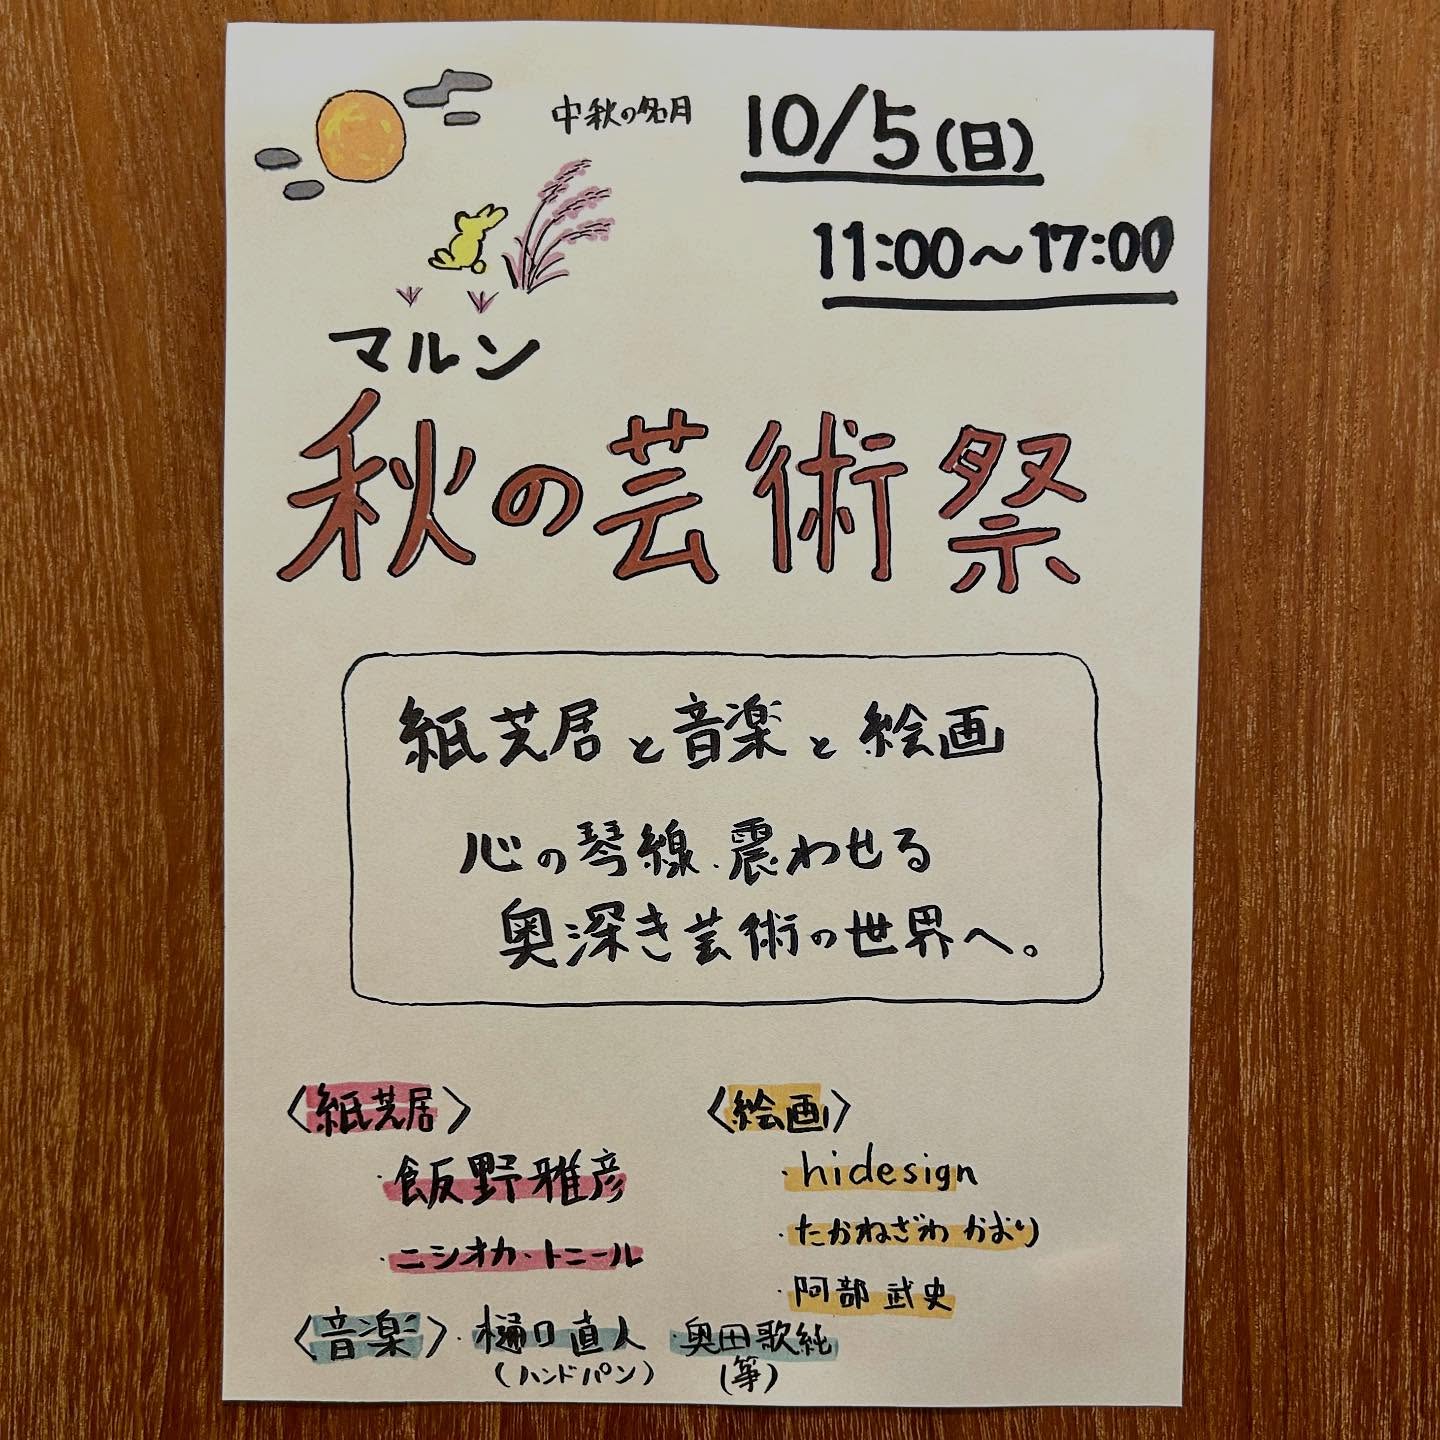 中秋の名月
10/5(日)
11:00〜17:00
マルン
秋の芸術祭
紙芝居と音楽と絵画
心の琴線、震わせる
奥深き芸術の世界へ。
〈紙芝居〉
・飯野雅彦
・ニシオカ・トニール
〈絵画〉
・hidesign
・たかねざわ かおり
・阿部 武史
〈音楽〉・樋口直人 ・奥田歌純
(ハンドパン) (箏)